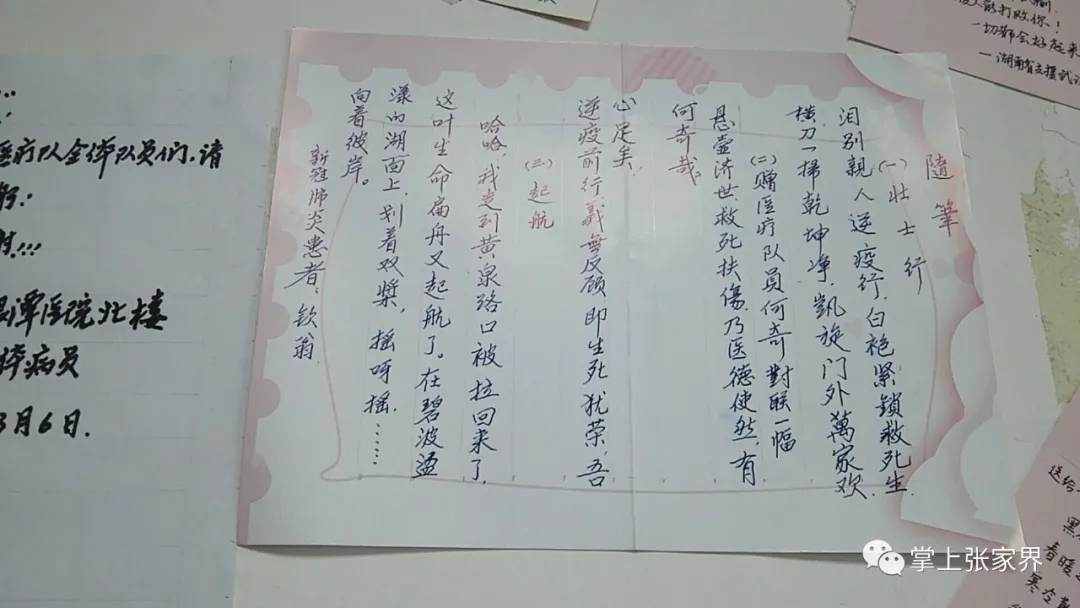 隨筆
(一)壮士行
泪别親人逆疫行,白袍紧鎖救死生.
横刀一掃乾坤净,凱旋门外萬家欢.
(二)赠医疗队员何奇對联一幅
悬壶济世,救死扶傷,乃医德使然,有
何奇哉。
逆疫前行,義無反顾,即生死犹荣,吾
心足矣,
(三)起航
哈哈,我走到黄泉路口被拉回来了,
这叶生命扁舟又起航了。在碧波盪
漾的湖面上,划着双桨,摇呀摇,……
向着彼岸。
新冠肺炎患者:钦翁
医疗队全体队员们,请
潭医院北楼
病员
3月6日.
人能打败你!
一切都会好起来
—湖南省支援武
送给
春暖
寒冷
掌上张家界